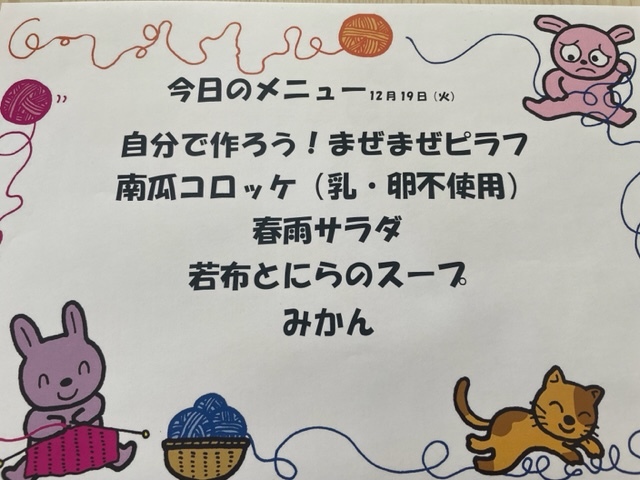 今日のメニュー 12月19日(火)
自分で作ろう!まぜまぜピラフ
南瓜コロッケ(乳・卵不使用)
春雨サラダ
若布とにらのスープ
みかん